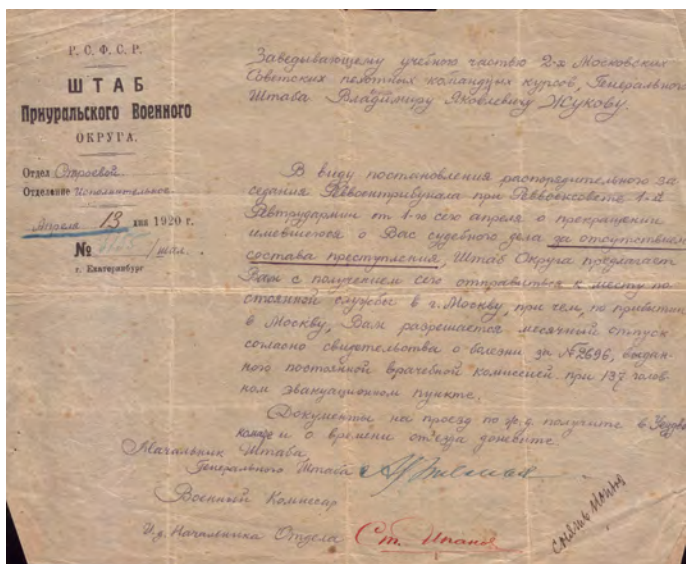 Р. С. Ф. С. Р.
ШТАБ
Приуральского Военного
ОКРУГА.
Отдел Строевой
Отделение Исполнительное
Апреля 13 дня 1920 г.
№
г. Екатеринбург
Заведывающему учебною частью 2-х Московских
Советских пехотных командных курсов, Генерального
Штаба Владимиру Яковлевичу Жукову.
В виду постановления распорядительного за
седания Реввоентрибунала при Реввоенсовете 1-й
от 1-го сего апреля о прекращении
имевшегося о Вас судебного дела за отсутствием
состава преступления, Штаб Округа предлагает
Вам с получением сего отправиться к месту по
стоянной службы в г. Москву, при чем, по прибытии
в Москву, Вам разрешается месячный отпуск
согласно свидетельства о болезни за №2696, выдан-
ного постоянной врачебной комиссией при 137 голов-
ном эвакуационном пункте.
Документы на проезд по ж.д. получите в
и о времени отъезда донесите.
Начальник Штаба,
Генерального Штаба
Военный Комиссар
И.д. Начальника Отдела